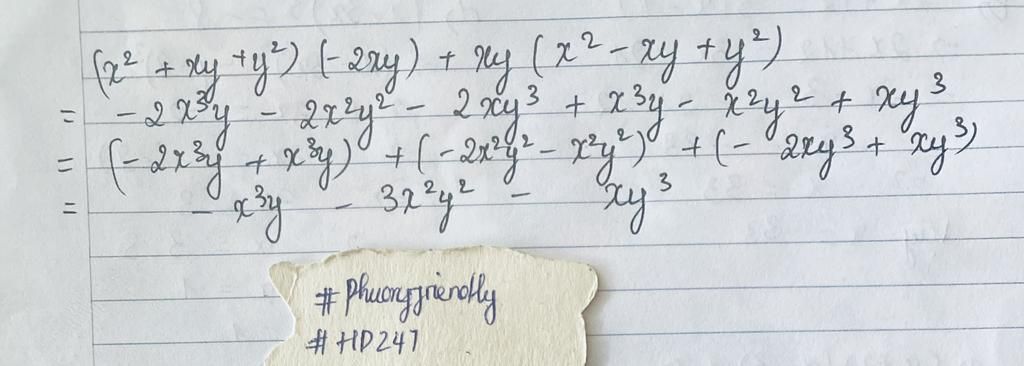 (x² + xy + y²) (-2xy) + xy (x² - xy + y²)
= - 2x³y - 2x²y² - 2xy³ + x³y - x²y² + xy³
= (- 2x³y + x³y) + (- 2x²y² - x²y²) + (- 2xy³ + xy³)
= - x³y - 3x²y² - xy³
# Phuongfriendly
# HD247